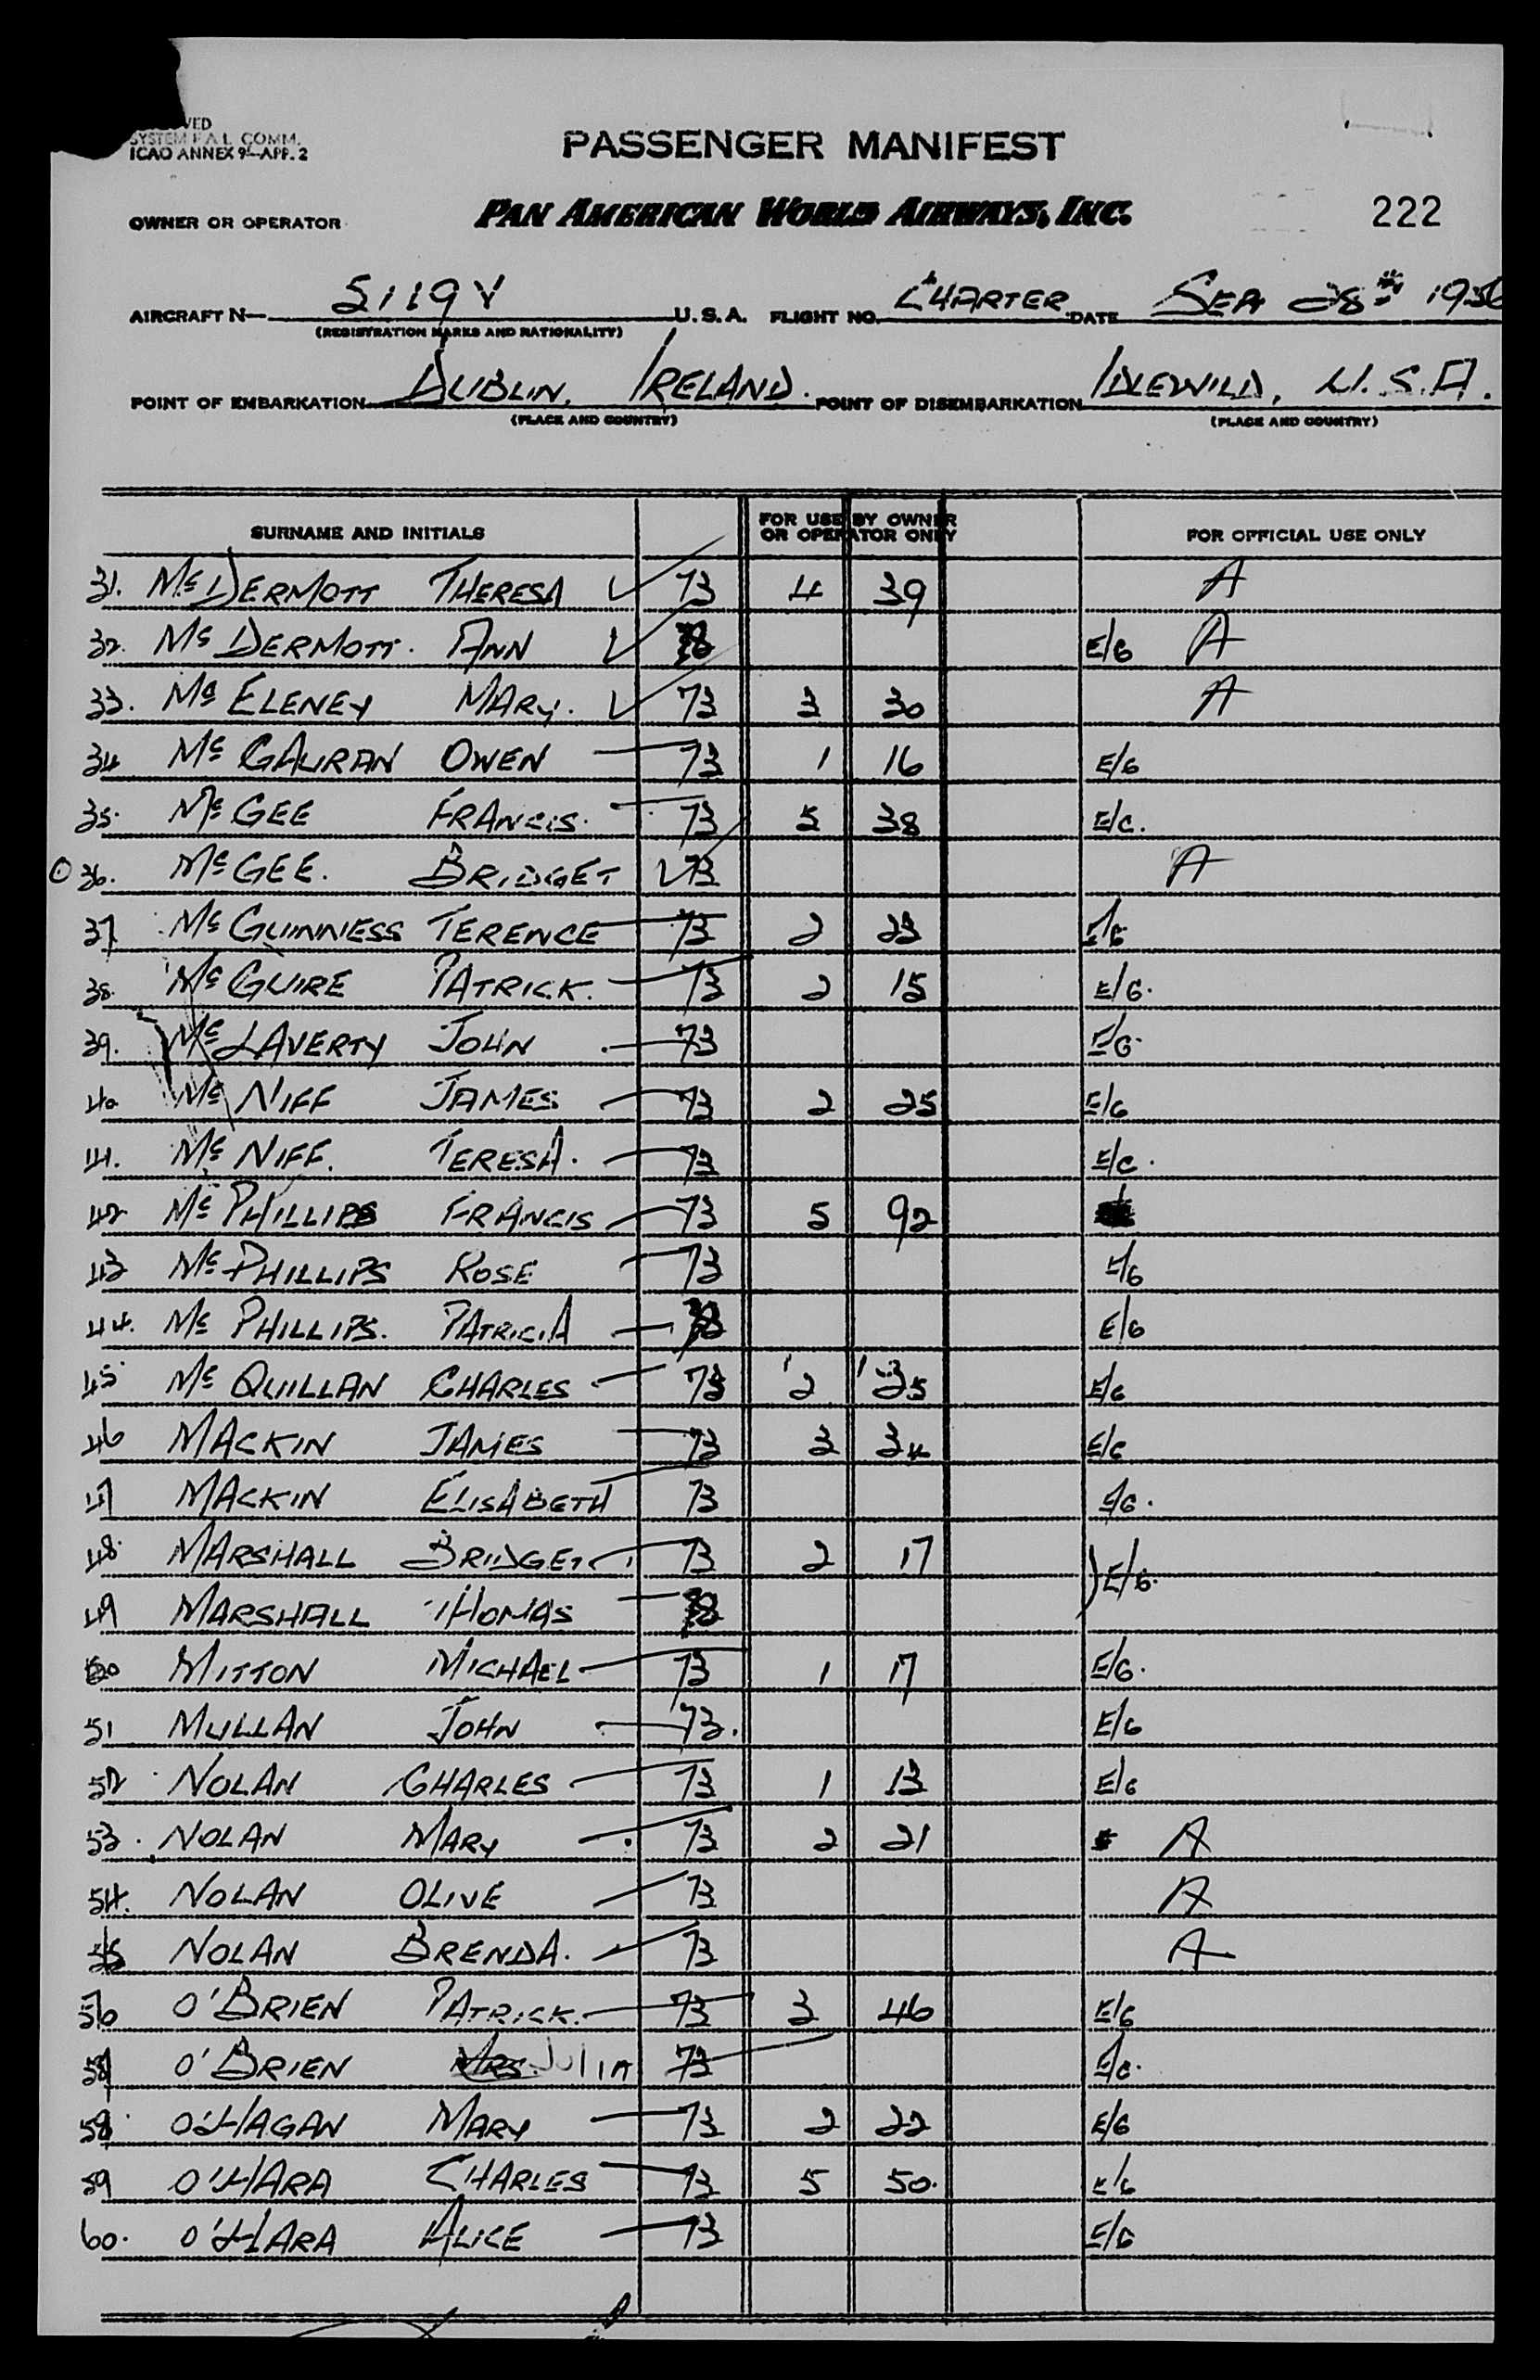 VED
SYSTEM F.A.L. COMM.
ICAO ANNEX 9—APP. 2
PASSENGER MANIFEST
OWNER OR OPERATOR
PAN AMERICAN WORLD AIRWAYS, INC.
222
AIRCRAFT N— 5119V U.S.A. FLIGHT NO. CHARTER DATE 28th 1956
(REGISTRATION MARKS AND NATIONALITY)
POINT OF EMBARKATION DUBLIN. IRELAND. POINT OF DISEMBARKATION IDLEWILD, U.S.A.
(PLACE AND COUNTRY) (PLACE AND COUNTRY)
SURNAME AND INITIALS FOR USE BY OWNER OR OPERATOR ONLY FOR OFFICIAL USE ONLY
31. McDERMOTT THERESA 73 4 39 A
32. McDERMOTT. ANN E/G A
33. McELENEY MARY. 73 3 30 A
34 McGAURAN OWEN 73 1 16 E/G
35. McGEE FRANCIS. 73 5 38 E/G.
36. McGEE. BRIDGET 73 A
37 McGUINNESS TERENCE 73 2 23 E/G
38. McGUIRE PATRICK. 73 2 15 E/G.
39. McLAVERTY JOHN 73 E/G.
40 McNIFF JAMES 73 2 25 E/G
41. McNIFF. TERESA. 73 E/G.
42 McPHILLIPS FRANCIS 73 5 92
43 McPHILLIPS ROSE 73 E/G
44. McPHILLIPS. PATRICIA E/G
45 McQUILLAN CHARLES 73 2 25 E/G
46 MACKIN JAMES 73 3 34 E/G
47 MACKIN ELISABETH 73 E/G.
48. MARSHALL BRIDGET 73 2 17 E/G.
49 MARSHALL THOMAS
50 MITTON MICHAEL 73 1 17 E/G.
51 MULLAN JOHN 73. E/G
52 NOLAN CHARLES 73 1 13 E/G
53. NOLAN MARY 73 2 21 A
54. NOLAN OLIVE 73 A
55 NOLAN BRENDA. 73 A
56 O'BRIEN PATRICK. 73 3 46 E/G
57 O'BRIEN MRS. JULIA 73 E/G.
58 O'HAGAN MARY 73 2 22 E/G
59 O'HARA CHARLES 73 5 50. E/G
60. O'HARA ALICE 73 E/G